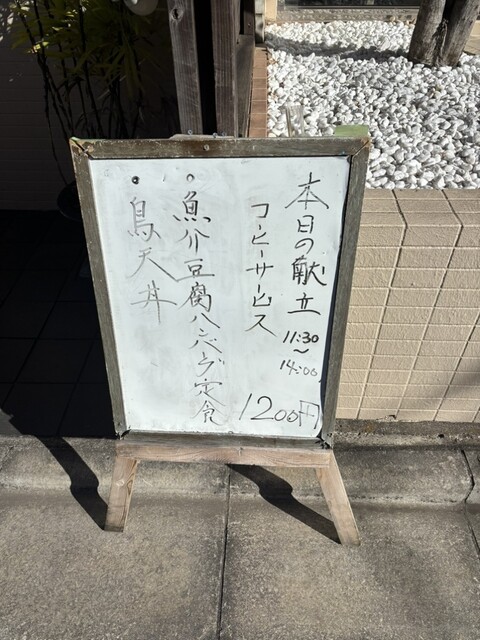 本日の献立
11:30
～
14:00
コーヒーサービス
1200円
・魚介豆腐ハンバーグ定食
・鳥天丼